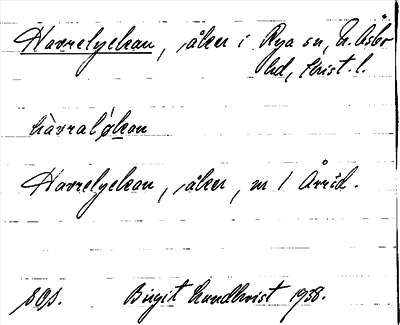 Havrelyckan, åker i Rya sn, N. Åsbo
hd, Krist. l.
hàvralỳkan
Havrelyckan, åker, nr 1 Årröd.
SOS. Birgit Lundkvist 1938.